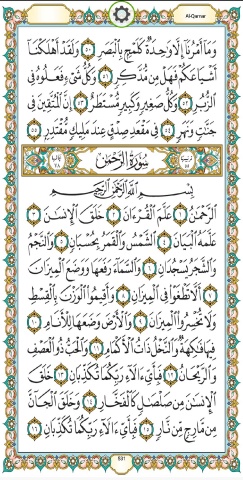 Al-Qamar
وَمَآ أَمْرُنَآ إِلَّا وَٰحِدَةٌ كَلَمْحٍۭ بِٱلْبَصَرِ ٥٠ وَلَقَدْ أَهْلَكْنَآ
أَشْيَاعَكُمْ فَهَلْ مِن مُّدَّكِرٍ ٥١ وَكُلُّ شَىْءٍ فَعَلُوهُ فِى
ٱلزُّبُرِ ٥٢ وَكُلُّ صَغِيرٍ وَكَبِيرٍ مُّسْتَطَرٌ ٥٣ إِنَّ ٱلْمُتَّقِينَ فِى
جَنَّٰتٍ وَنَهَرٍ ٥٤ فِى مَقْعَدِ صِدْقٍ عِندَ مَلِيكٍ مُّقْتَدِرٍۭ ٥٥
سُورَةُ الرَّحْمَٰن
بِسْمِ ٱللَّهِ ٱلرَّحْمَٰنِ ٱلرَّحِيمِ
ٱلرَّحْمَٰنُ ١ عَلَّمَ ٱلْقُرْءَانَ ٢ خَلَقَ ٱلْإِنسَٰنَ ٣
عَلَّمَهُ ٱلْبَيَانَ ٤ ٱلشَّمْسُ وَٱلْقَمَرُ بِحُسْبَانٍ ٥ وَٱلنَّجْمُ
وَٱلشَّجَرُ يَسْجُدَانِ ٦ وَٱلسَّمَآءَ رَفَعَهَا وَوَضَعَ ٱلْمِيزَانَ
٧ أَلَّا تَطْغَوْا۟ فِى ٱلْمِيزَانِ ٨ وَأَقِيمُوا۟ ٱلْوَزْنَ بِٱلْقِسْطِ
وَلَا تُخْسِرُوا۟ ٱلْمِيزَانَ ٩ وَٱلْأَرْضَ وَضَعَهَا لِلْأَنَامِ ١٠
فِيهَا فَٰكِهَةٌ وَٱلنَّخْلُ ذَاتُ ٱلْأَكْمَامِ ١١ وَٱلْحَبُّ ذُو ٱلْعَصْفِ
وَٱلرَّيْحَانُ ١٢ فَبِأَىِّ ءَالَآءِ رَبِّكُمَا تُكَذِّبَانِ ١٣ خَلَقَ
ٱلْإِنسَٰنَ مِن صَلْصَٰلٍ كَٱلْفَخَّارِ ١٤ وَخَلَقَ ٱلْجَآنَّ
مِن مَّارِجٍ مِّن نَّارٍ ١٥ فَبِأَىِّ ءَالَآءِ رَبِّكُمَا تُكَذِّبَانِ ١٦
531